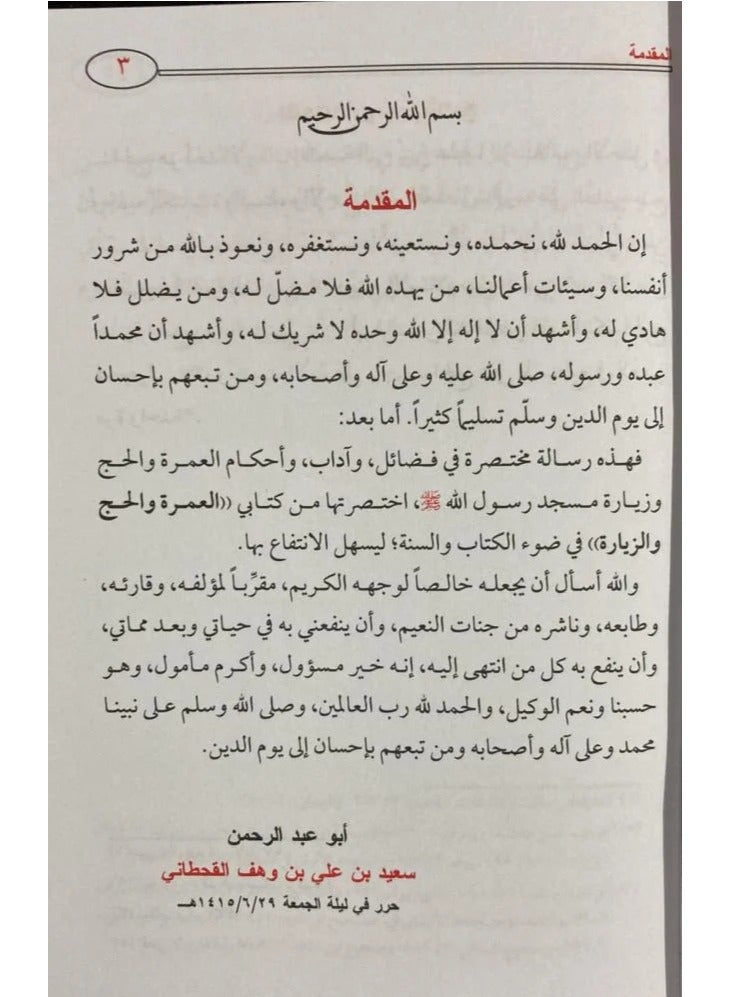 المقدمة
٣
بسم الله الرحمن الرحيم
المقدمة
إن الحمد لله، نحمده، ونستعينه، ونستغفره، ونعوذ بالله من شرور
أنفسنا، وسيئات أعمالنا، من يهده الله فلا مضلّ له، ومن يضلل فلا
هادي له، وأشهد أن لا إله إلا الله وحده لا شريك له، وأشهد أن محمداً
عبده ورسوله، صلى الله عليه وعلى آله وأصحابه، ومن تبعهم بإحسان
إلى يوم الدين وسلّم تسليماً كثيراً. أما بعد:
فهذه رسالة مختصرة في فضائل، وآداب، وأحكام العمرة والحج
وزيارة مسجد رسول الله ﷺ، اختصرتها من كتابي ((العمرة والحج
والزيارة)) في ضوء الكتاب والسنة؛ ليسهل الانتفاع بها.
والله أسأل أن يجعله خالصاً لوجهه الكريم، مقرِّباً لمؤلفه، وقارئه،
وطابعه، وناشره من جنات النعيم، وأن ينفعني به في حياتي وبعد مماتي،
وأن ينفع به كل من انتهى إليه، إنه خير مسؤول، وأكرم مأمول، وهو
حسبنا ونعم الوكيل، والحمد لله رب العالمين، وصلى الله وسلم على نبينا
محمد وعلى آله وأصحابه ومن تبعهم بإحسان إلى يوم الدين.
أبو عبد الرحمن
سعيد بن علي بن وهف القحطاني
حرر في ليلة الجمعة ١٤١٥/٦/٢٩هـ